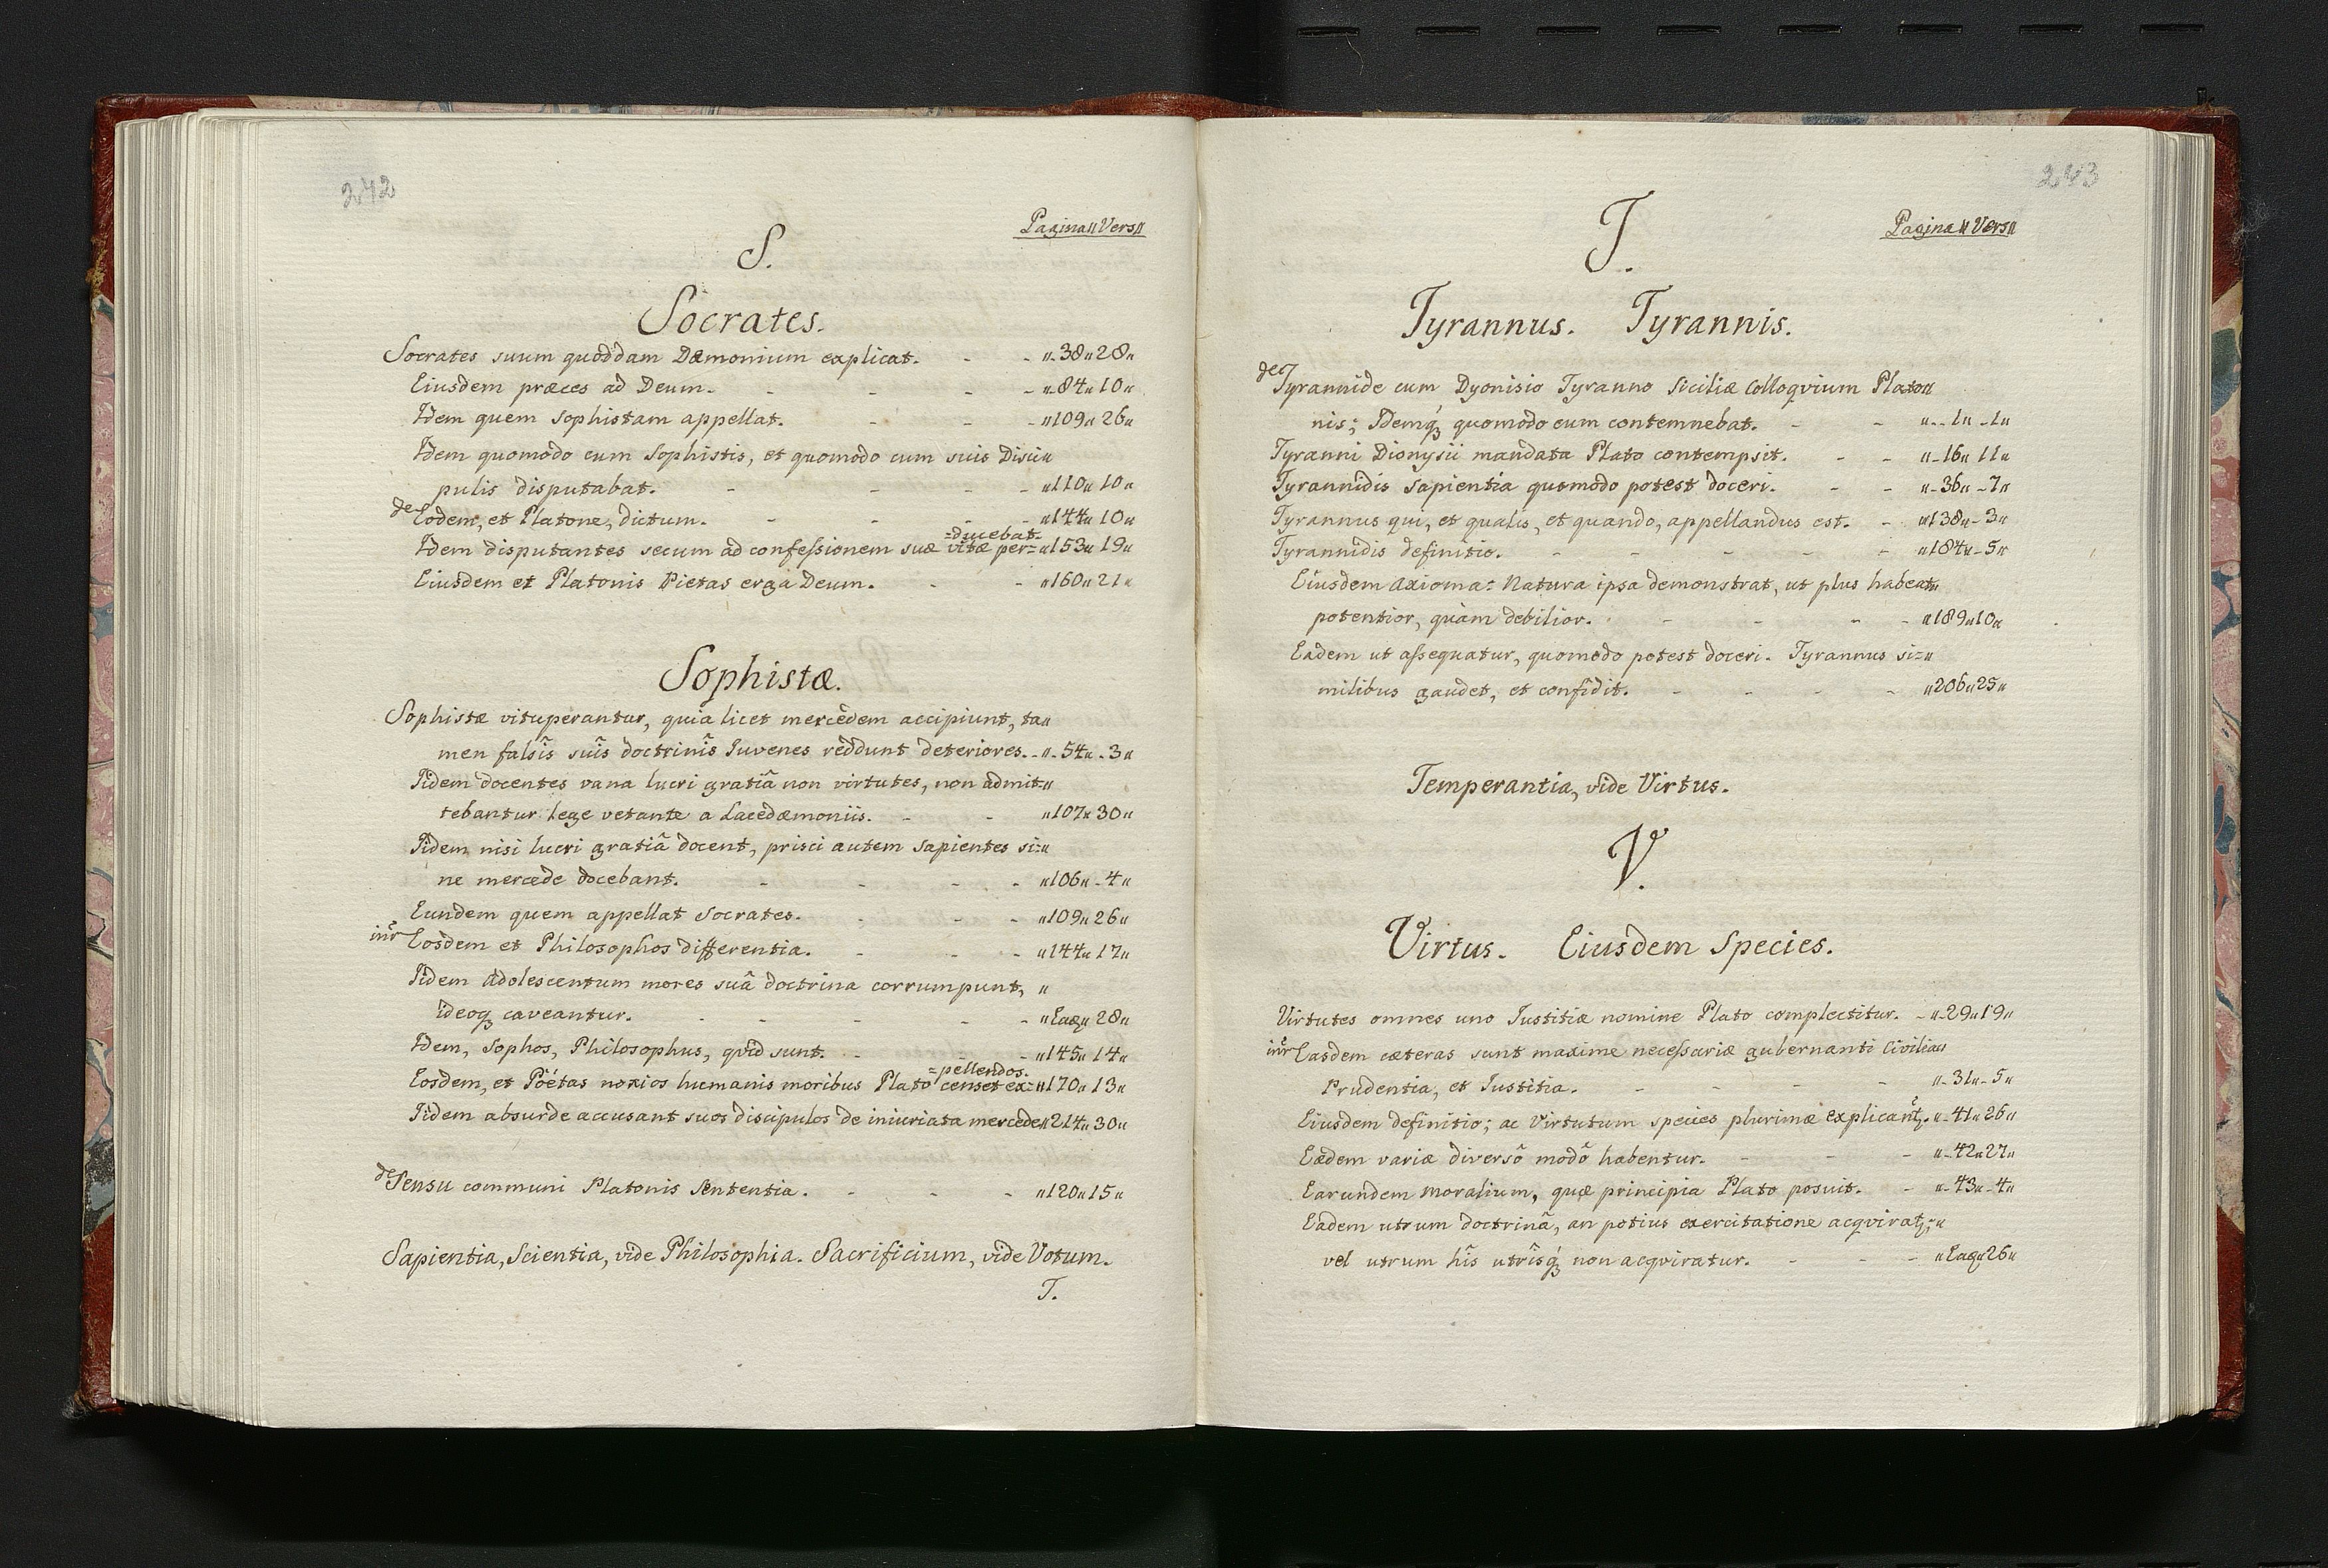 242
Pagina〃Vers〃
S.
Socrates.
Socrates suum quoddam Dæmonium explicat. - - 〃-38〃28〃
Eiusdem præces ad Deum. - - - - 〃-84〃10〃
Idem quem Sophistam appellat. - - - 〃109〃26〃
Idem quomodo cum Sophistis, et quomodo cum suis Disci〃
pulis disputabat. - - - - 〃110〃10〃
de Eodem, et Platone, dictum. - - - - 〃144〃10〃
=ducebat=
Idem disputantes secum ad confessionem suæ vitæ per= 〃153〃19〃
Eiusdem et Platonis Pietas erga Deum. - - 〃160〃21〃
Sophistæ.
Sophistæ vituperantur, quia licet mercèdem accipiunt, ta〃
men falsîs suîs doctrinîs Iuvenes reddunt deteriores. - 〃-54〃-3〃
Iidem docentes vana lucri gratiâ non virtutes, non admit=〃
tebantur lege vetante a Lacedæmoniis. - - 〃107〃30〃
Iidem nisi lucri gratiâ docent, prisci autem Sapientes si=〃
ne mercede docebant. - - - - 〃106〃-4〃
Eundem quem appellat Socrates. - - - 〃109〃26〃
intr̃ Eosdem et Philosophos differentia. - - - 〃144〃17〃
Iidem Adolescentum mores suâ doctrina corrumpunt, 〃
ideoq3 caveantur. - - - - - 〃Eaq〃28〃
Idem, Sophos, Philosophus, qvid sunt. - - - 〃145〃14〃
=pellendos.
Eosdem, et Poétas noxios humanis moribus Plato censet ex= 〃170〃13〃
Iidem absurde accusant suos discipulos de iniuriata mercede〃214〃30〃
de Sensu communi Platonis Sententia. - - - 〃120〃15〃
Sapientia, Scientia, vide Philosophia. Sacrificium, vide Votum.
T.
243
Pagina〃Vers〃
T.
Tyrannus. Tyrannis.
de Tyrannide cum Dyonisio Tyranno Siciliæ Colloqvium Plato〃
nis; Idemq́3 quomodo eum contemnebat. - - 〃--1〃-1〃
Tyranni Dionysii mandata Plato contempsit. - - 〃-16〃11〃
Tyrannidis Sapientia quomodo potest doceri. - - 〃-36〃-7〃
Tyrannus qui, et qualis, et quando, appellandus est. - 〃138〃-3〃
Tyrannidis definitio. - - - - - 〃184〃-5〃
Eiusdem Axioma: Natura ipsa demonstrat, ut plus habeat〃
potentior, quàm debilior. - - - - 〃189〃10〃
Eadem ut assequatur, quomodo potest doceri. Tyrannus si=〃
milibus gaudet, et confidit. - - - - 〃206〃25〃
Temperantia, vide Virtus.
V.
Virtus. Eiusdem Species.
Virtutes omnes uno Iustitiæ nomine Plato complectitur. - 〃-29〃19〃
intr̃ Easdem cæteras sunt maxime necessariæ gubernanti Civilia〃
Prudentia, et Iustitia. - - - - 〃-31〃-5〃
Eiusdem definitio; ac Virtutum species plurimæ explicant̃. 〃-41〃26〃
Eædem variæ diversô modô habentur. - - - 〃-42〃27〃
Earundem moralium, quæ principia Plato posuit. - 〃-43〃-4〃
Eadem utrum doctrinâ, an potius exercitatione acqvirat̃;=〃
vel utrum hîs utrîsq́3 non acqviratur. - - - 〃Eaq〃26〃